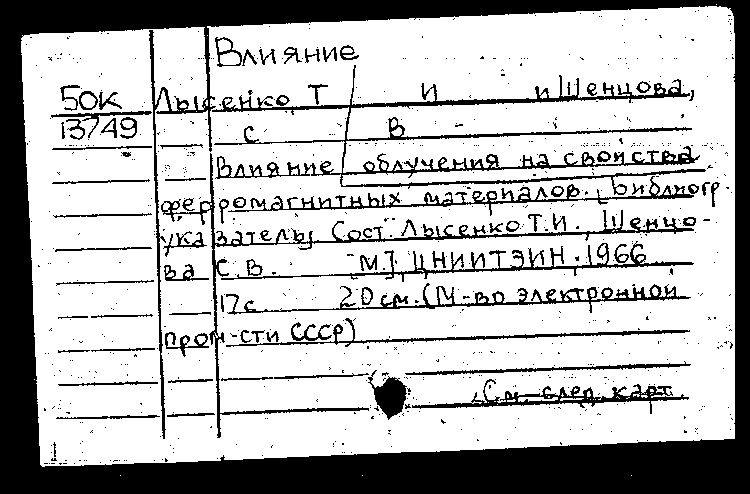 Влияние
БОК Лысенко Т И и Шенцова,
13749 С В
Влияние облучения на свойства
ферромагнитных материалов. [Библиогр.
указатель] Сост. Лысенко Т.И., Шенцо-
ва С.В. [М.], ЦНИИТЭИН. 1966
17с 20 см. (М-во электронной
пром-сти СССР)
См. след. карт.